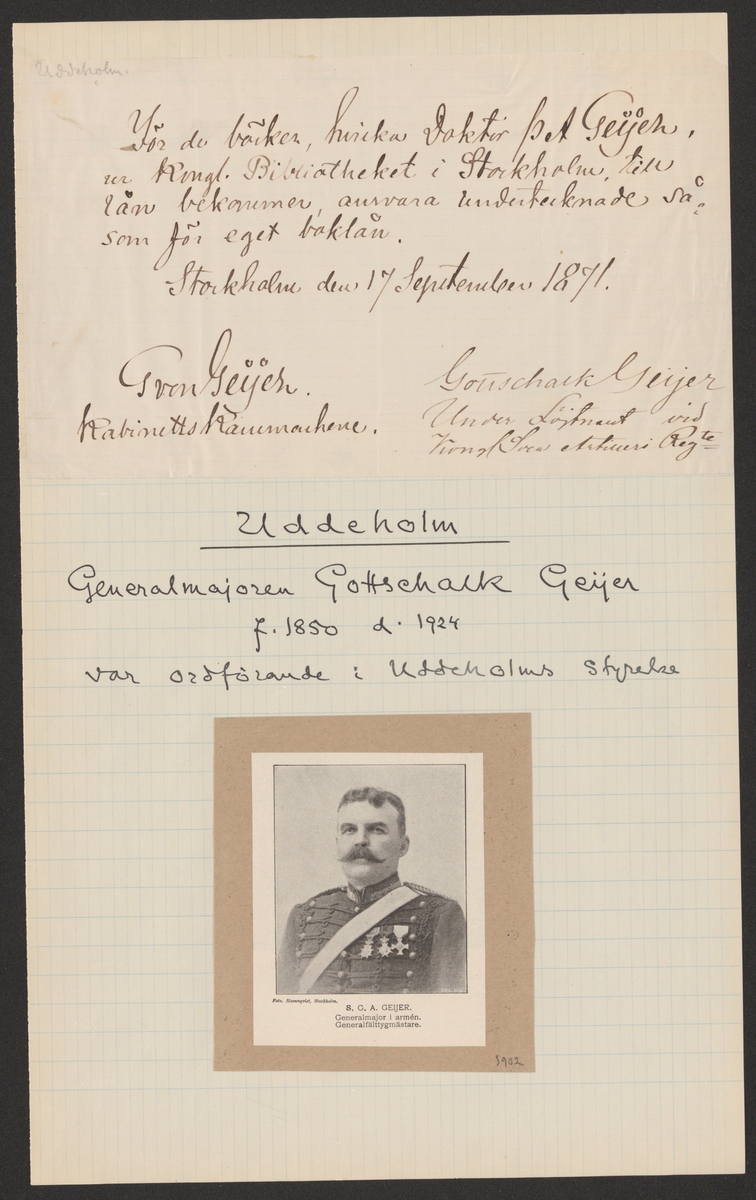 Uddeholm.
För de böcker, hvilka Doktor P. A. Geijer,
ur Kongl. Bibliotheket i Stockholm, till
lån bekommer, ansvara undertecknade så-
som för eget boklån.
Stockholm den 17 September 1871.
Sven Geijer.
Kabinetts Kammarherre.
Gottschalk Geijer
Under Löjtnant vid
Kongl Svea Artilleri Regte
Uddeholm
Generalmajoren Gottschalk Geijer
f. 1850 d. 1924
var ordförande i Uddeholms Styrelse
Foto. Blomqvist, Stockholm.
S. G. A. GEIJER.
Generalmajor i armén.
Generalfälttygmästare.
1902